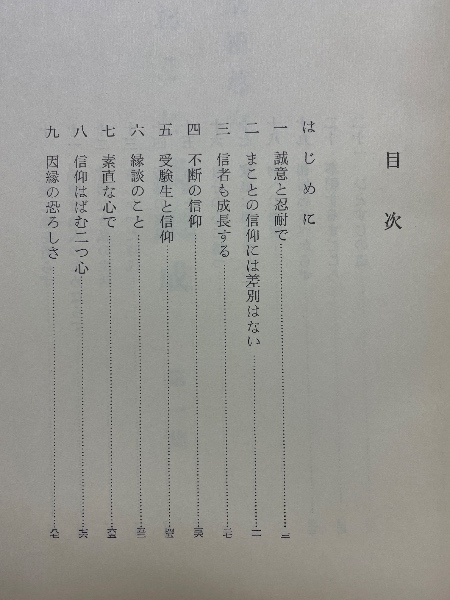 目次
はじめに
一 誠意と忍耐で
二 まことの信仰には差別はない
三 信者も成長する
四 不断の信仰
五 受験生と信仰
六 縁談のこと
七 素直な心で
八 信仰はばむ二つ心
九 因縁の恐ろしさ